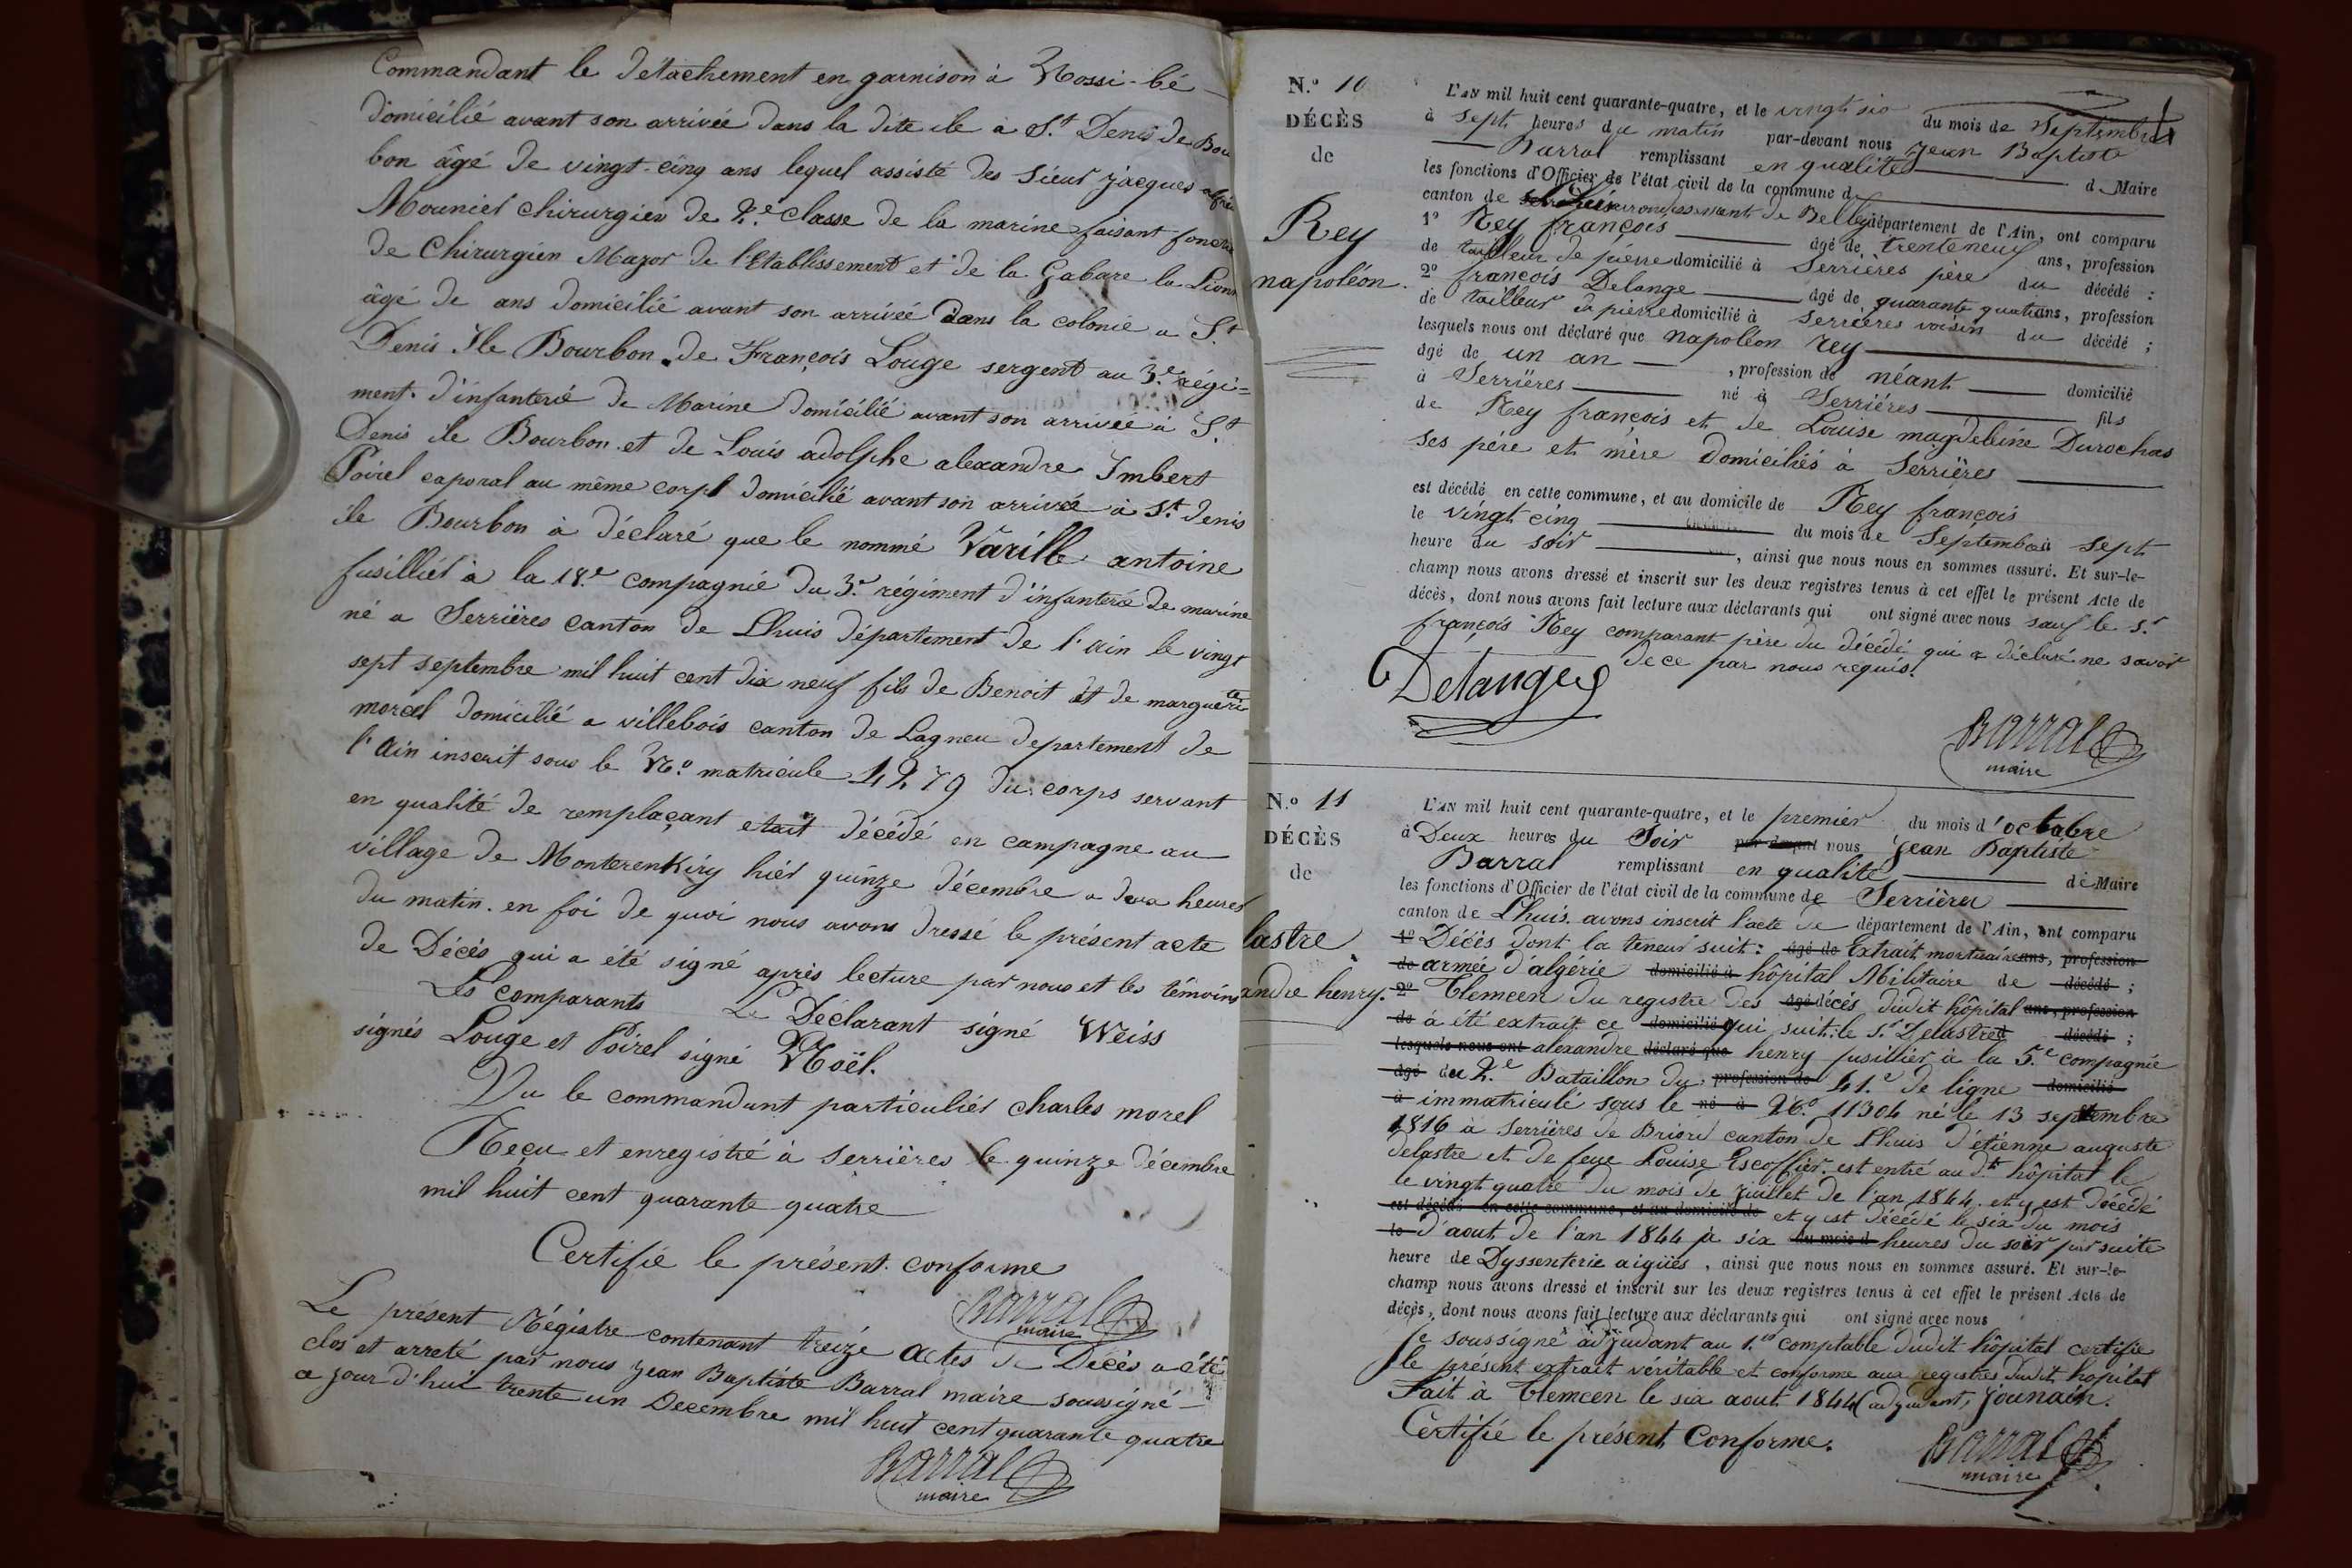 Commandant le détachement en garnison à Nossi-bé
domicilié avant son arrivée dans la dite ile à S.t Denis de Bou
bon âgé de vingt-cinq ans lequel assisté des Sieur jacques
Mouniel chirurgien de 2.e classe de la marine faisant foncti
de Chirurgien Major de l'Etablissement et de la Gabare la
âgé de ans domicilié avant son arrivéé dans la colonie a S.t
Denis Ile Bourbon de François Louge sergent au 3.e régi=
ment d'infanterie de Marine domicilié avant son arrivée à S.t
Denis ile Bourbon et de Louis adolphe alexandre Imbert
Poirel caporal au même corps domicilié avant son arrivée à S.t denis
ile Bourbon à déclaré que le nommé Varille antoine
fusillier à la 18.e compagnie du 3.e régiment d'infanterie de marine
né a Serrières canton de Lhuis département de l'ain le vingt
sept septembre mil huit cent dix neuf fils de Benoit et de marguerite
morel domicilié a villebois canton de Lagneu departement de
l'Ain inscrit sous le N.o matricule 4279 du corps servant
en qualité de remplaçant etait décédé en campagne au
village de Monterenkiry hier quinze décembre a deux heures
du matin. en foi de quoi nous avons dressé le présent acte
de Décès qui a été signé après lecture par nous et les témoins
Les comparants Le Déclarant signé Weiss
signés Louge et Poirel signé Noël.
Vu le commandant particulier charles morel
Reçu et enregistré à Serrières le quinze décembre
mil huit cent quarante quatre
Certifié le présent conforme
Barral
maire
Le présent Régistre contenant treize actes de Décès a été
clos et arreté par nous jean Baptiste Barral maire soussigné
a jour d'hui trente un Decembre mil huit cent quarante quatre
Barral
maire
N.o 10
DÉCÈS
de
Rey
napoléon.
L'AN mil huit cent quarante-quatre, et le vingt six du mois de Septembre
à Sept heures du matin par-devant nous jean Baptiste
Barral remplissant en qualité d Maire
les fonctions d'Officier de l'état civil de la commune d
canton de arrondissement de Belley département de l'Ain, ont comparu
1o Rey françois âgé de trente neuf ans, profession
de tailleur de pierre domicilié à Serrières père du décédé :
2o françois Delange âgé de quarante quatre ans, profession
de tailleur de pierre domicilié à Serrières voisin du décédé ;
lesquels nous ont déclaré que napoléon rey
âgé de un an , profession de néant domicilié
à Serrières né à Serrières fils
de Rey françois et de Louise magdeleine Durochas
ses père et mère domiciliés à Serrières
est décédé en cette commune, et au domicile de Rey françois
le vingt cinq du mois de Septembre à sept
heure du soir , ainsi que nous nous en sommes assuré. Et sur-le-
champ nous avons dressé et inscrit sur les deux registres tenus à cet effet le présent Acte de
décès, dont nous avons fait lecture aux déclarants qui ont signé avec nous sauf le S.r
françois Rey comparant père du décédé qui a déclaré ne savoir
de ce par nous requis.
Delange
Barral
maire
N.o 11
DÉCÈS
de
lastre
andre henry.
L'AN mil huit cent quarante-quatre, et le premier du mois d'octobre
à Deux heures du Soir par devant nous jean Baptiste
Barral remplissant en qualité de Maire
les fonctions d'Officier de l'état civil de la commune de Serrières
canton de Lhuis. avons inscrit l'acte de département de l'Ain, ont comparu
1o Décès dont la teneur suit : âgé de Extrait mortuaire ans, profession
de armée d'algérie domicilié à hôpital Militaire de décédé ;
2o tlemcen du registre des âgé décés dudit hôpital ans, profession
de à été extrait ce domicilié qui suit : le S.r Delastre décédé ;
lesquels nous ont alexandre déclaré que henry fusillier à la 5.e compagnie
âgé du 2.e Bataillon du profession de 41.e de ligne domicilié
à immatriculé sous le né à N.o 11304 né le 13 septembre
1816 à Serrières de Briord canton de Lhuis d'étienne auguste
delastre et de feue Louise Escoffier. est entré au d.t hôpital le
le vingt quatre du mois de juillet de l'an 1844. et y est décédé
est décédé en cette commune, et au domicile de et y est décédé le six du mois
le d'aout de l'an 1844 à six du mois d heures du soir par suite
heure de Dyssenterie aigüés , ainsi que nous nous en sommes assuré. Et sur-le-
champ nous avons dressé et inscrit sur les deux registres tenus à cet effet le présent Acte de
décès, dont nous avons fait lecture aux déclarants qui ont signé avec nous
Je soussigné adjudant au 1.er comptable dudit hôpital certifie
le présent extrait véritable et conforme aux registres dudit hopital
Fait à tlemcen le six aout 1844 (adjudant, Jounain.
Certifié le présent Conforme.
Barral
maire